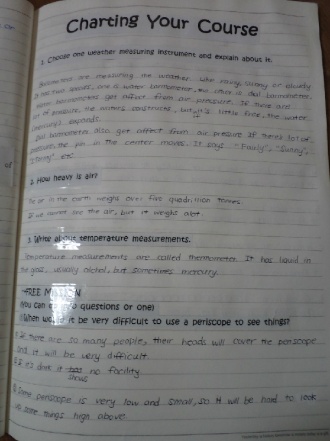 Charting Your Course
1. Choose one weather measuring instrument and explain about it.
Barometers are measuring the weather. Like rainy, sunny or cloudy
It has two types, one is water barometer, the other is dial barometer.
Water barometers get affect from air pressure. If there are
lot of pressure, the waters constructs, but it's little free, the water
expands.
Dial barometer also get affect from air pressure if there's lot of
pressure, the pin in the center moves. It says "Fouly", "Sunny",
"Stormy" etc
2. How heavy is air?
The air in the earth weighs over five quadrillion tonnes.
If we cannot see the air, but it weighs alot.
3. Write about temperature measurements.
Temperature measurements are called thermometer. It has liquid in
the glass, usually alchol, but sometimes mercury.
FREE
(You can do two questions or one)
When would it be very difficult to use a periscope to see things?
If there are so many people, their heads will cover the periscope
and it will be very difficult.
If it's dark it shows no facility
Some periscope is very low and small, so it will be hard to look
things high above.